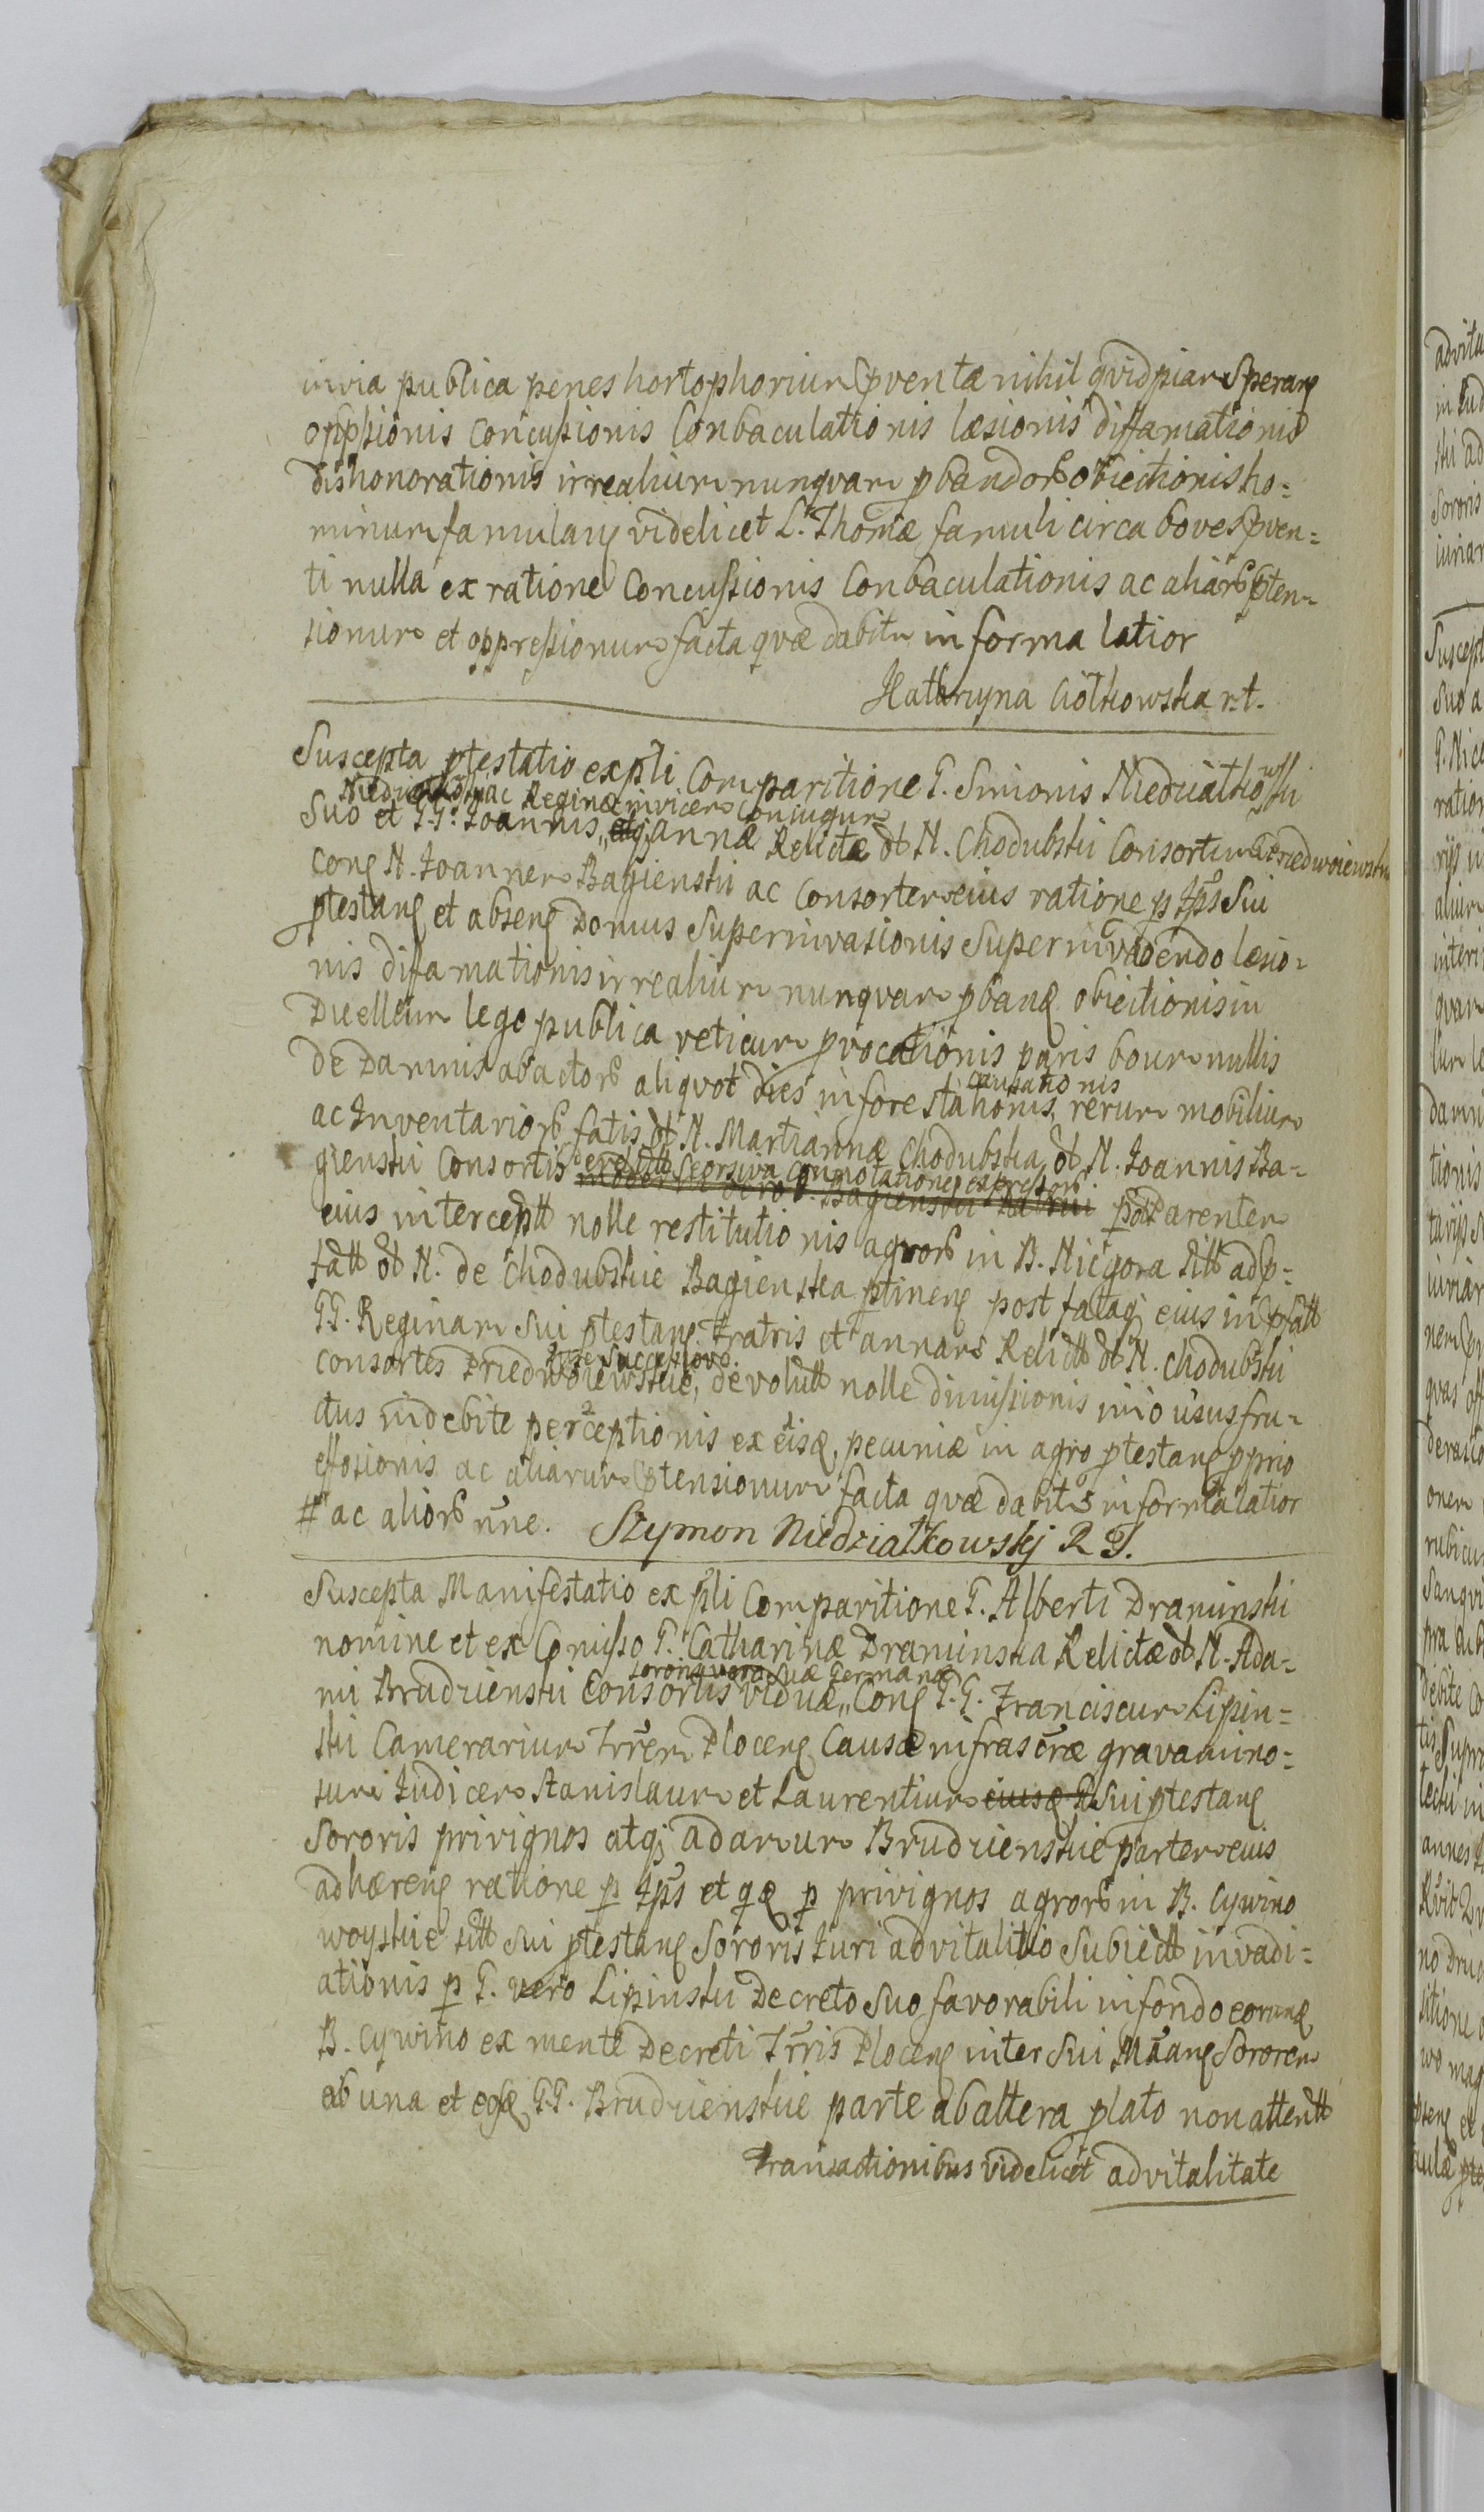 in via publica penes hortophorium pventæ nihil quidpiam Sperang
oppsionis Concussionis Conbaculationis læsionis diffamationis
dishonorationis irrealium nunquam pbandor obiectionis ho=
minum famulang videlicet L. Thomæ famuli circa boves pven=
ti nulla ex ratione Concussionis Conbaculationis ac aliar pten=
sionum et oppressionum facta quæ dabitur in forma latior
Katarzyna Ciółkowska r.t.
Suscepta ptestatio ex pli Comparitione G. Simonis Niedziałkowski
Niedział ac Reginæ invicem Coniugum
Suo et G.G. Joannis annæ Relictæ ol N. Chodubski Consortum Przedwoiewski
Cong N. Joannem Bagienski ac Consortem eius ratione p Ips Sui
ptestang et abseng Domus Superinvasionis Superinvadendo læsio=
nis diffamationis irrealium nunquam pbang obiectionis in
Duellum lege publica vetitum pvocationis paris boum nullis
de Damnis abactor aliquot dies inforestationis rerum mobilium
causationis
ac Inventarior fatis ol N. Martiannæ Chodubska ol N. Joannis Ba=
gienski Consortis Seorsiva Connotatione expressor
Bagienski post Parentem
eius intercept nolle restitutionis agror in B. Niegora sitt ad p=
fatt ol N. de Chodubskie Bagienska ptineng post fataq eius in pfatt
GG. Reginam Sui ptestang Fratris et annam Relictt ol N. Chodubski
Consortes Przedwoiewskie, devolutt nolle dimissionis imo ususfru=
Jure Successivo
ctus indebite perceptionis ex eisd, pecuniæ in agro ptestang pprio
effosionis ac aliarum ptensionum facta quæ dabitr in forma latior
# ac alior une. Szymon Niedziałkowskj R T.
Suscepta Manifestatio ex pli Comparitione G. Alberti Draminski
nomine et ex Comisso G. Catharinæ Draminska Relictæ ol N. Ada=
Sororis vero suæ Germanæ
mi Brudzienski Consortis viduæ, Cong G.G. Franciscum Lipin=
ski Camerarium Trrem Ploceng Causæ infrascræ gravamino=
sum Judicem Stanislaum et Laurentium Sui ptestang
Sororis privignos atq adamum Brudzienskie partem eius
adhæreng ratione p Ips et qæ p privignos agror in B. Cywino
woyskie sitt Sui ptestang Sororis Juri advitalitio Subiectt invadi=
ationis p G. vero Lipinski Decreto Suo favorabili in fondo eorund
B. Cywino ex mente Decreti Trris Ploceng inter Sui Mang Sororem
ab una et eosd G.G. Brudzienskie parte ab altera plato non attentt
transactionibus videlicet advitalitate